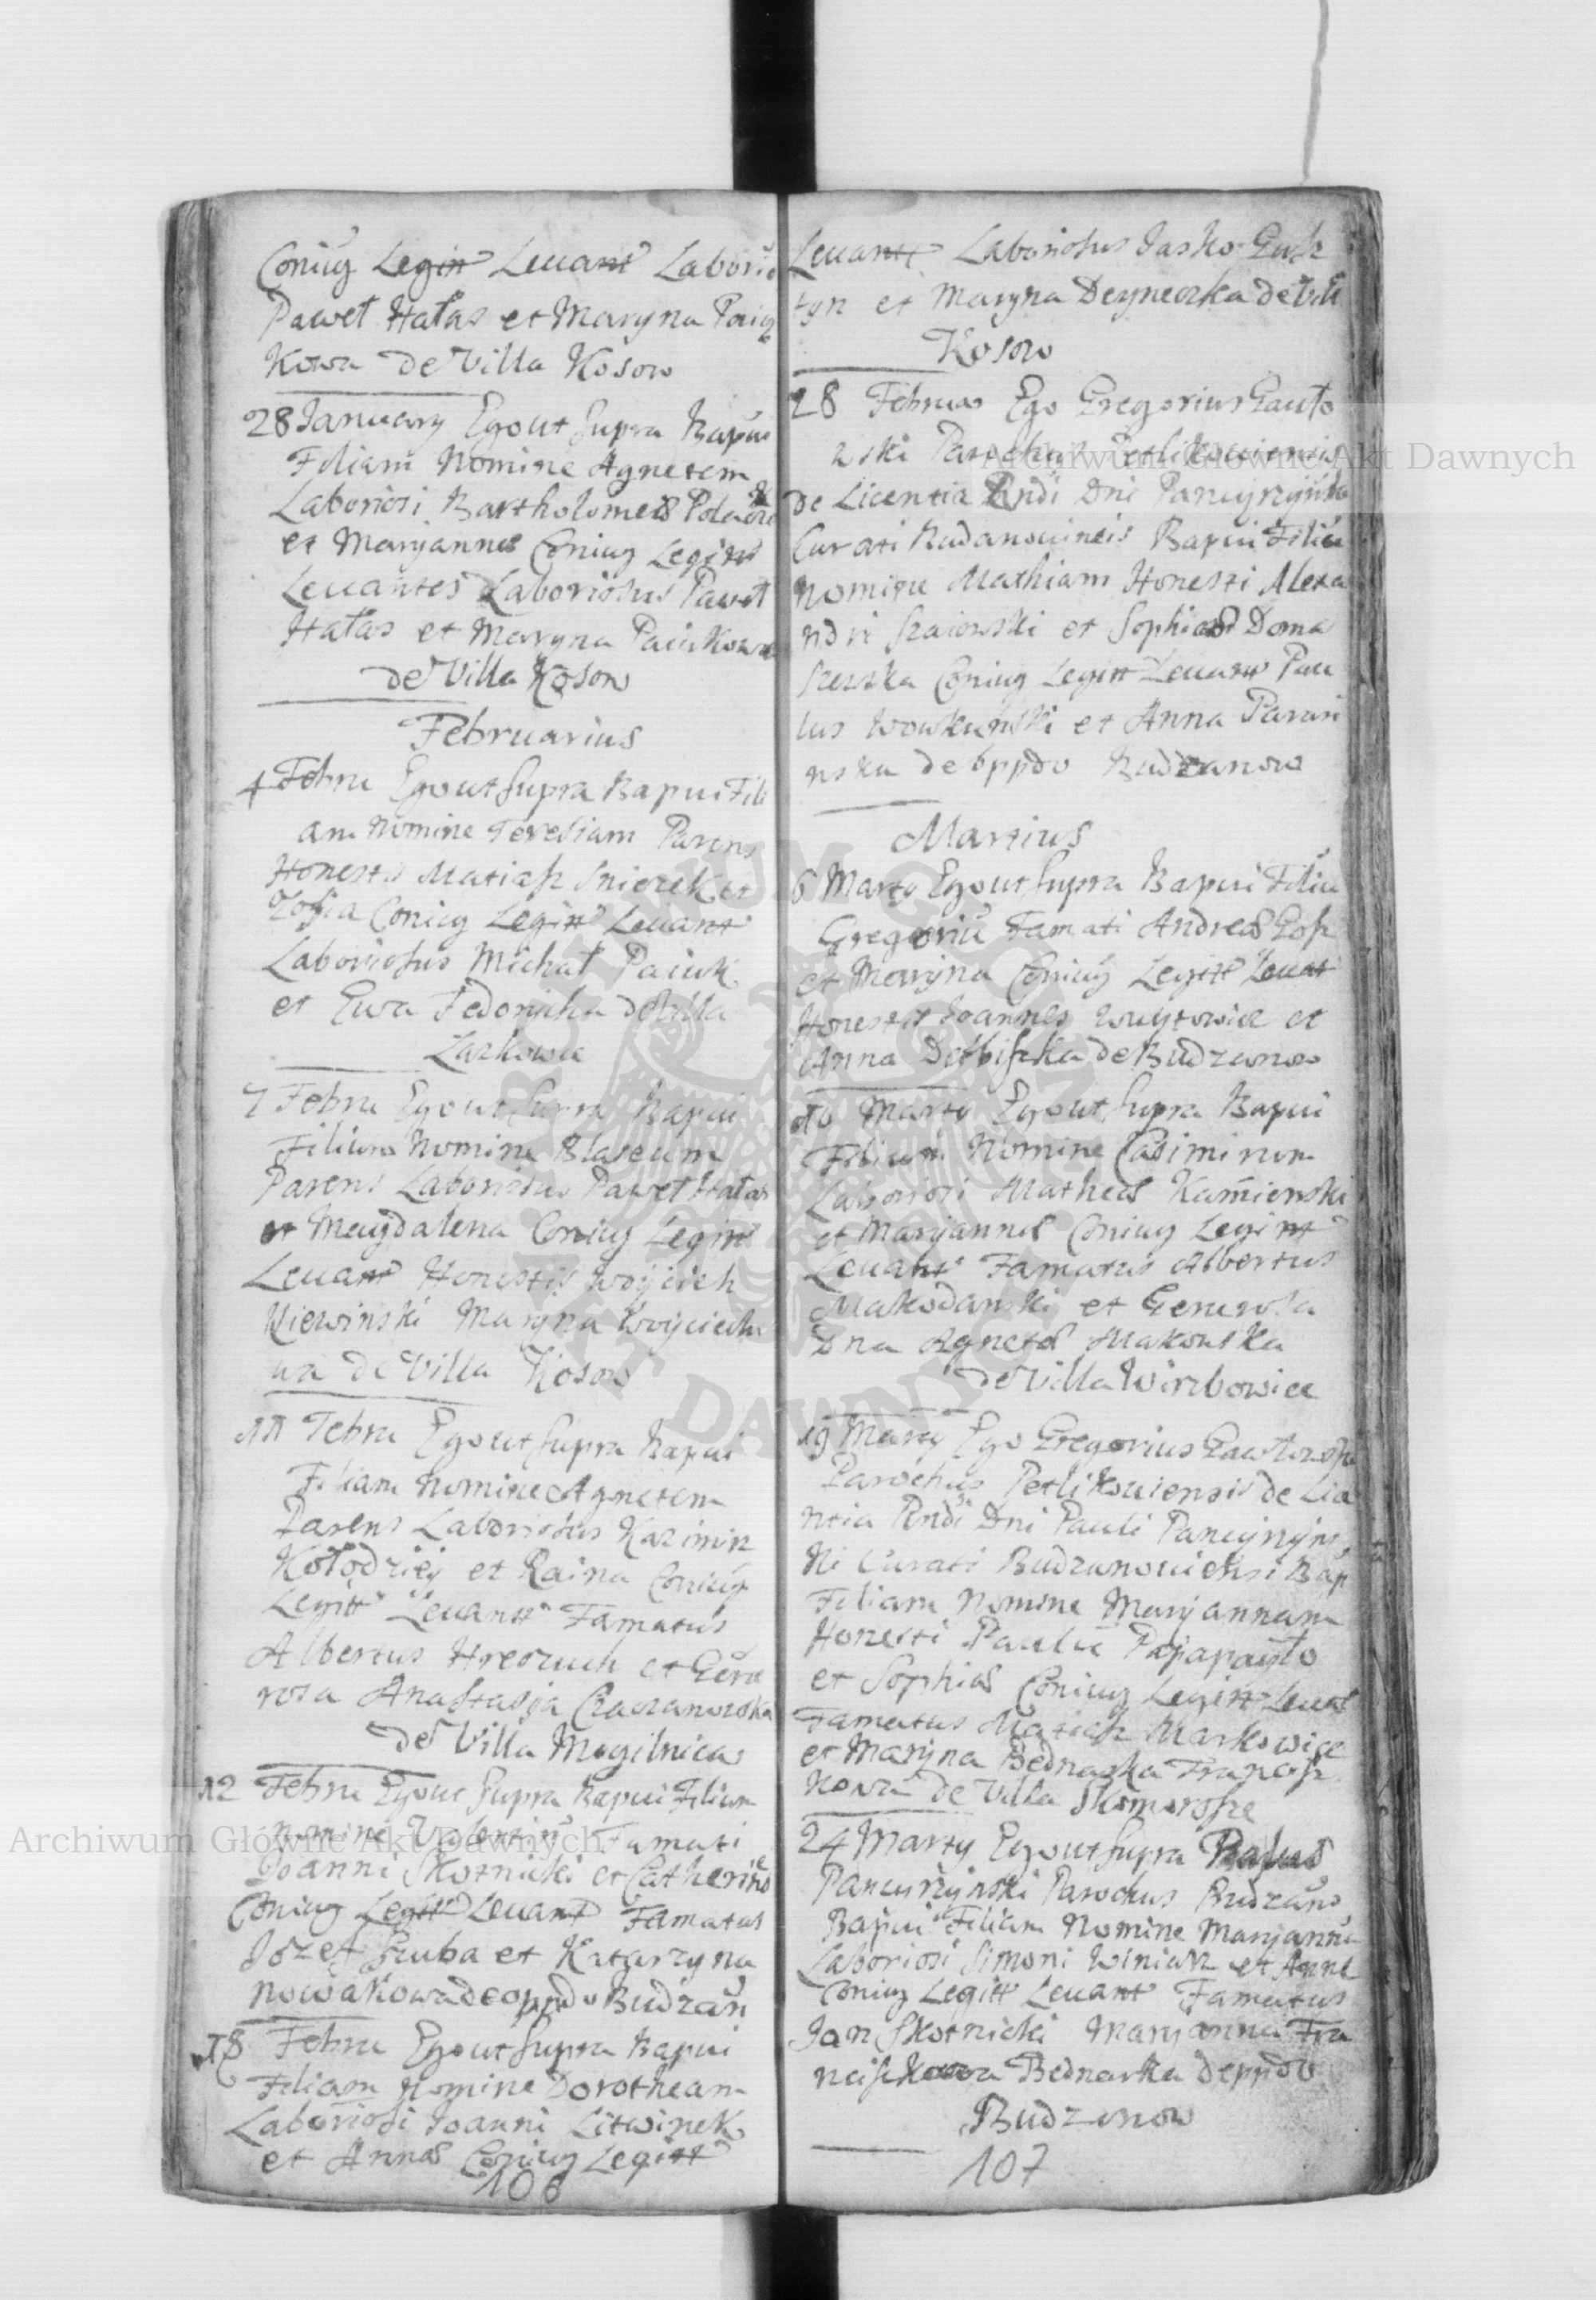 Coniug Legitt Levant Laborio
Paweł Hałas et Maryna Paiu
Kowa de Villa Kosow
28 January Ego ut Supra Bapui
Filiam Nomine Agnetem
Laboriosi Bartholomei
et Maryannes Coniug Legitt
Levantes Laboriosus Paweł
Hałas et Maryna Paiukowa
de Villa Kosow
Februarius
4 Febru Ego ut Supra Bapui Fili
am Nomine Teresiam Parens
Honestis Matiasz Sniezek et
Zofia Coniug Legitt Levant
Laboriosus Michał Paiuk
et Ewa Fedoryszka de Villa
Laskowce
7 Febru Ego ut Supra Bapui
Filium Nomine Blaseum
Parens Laboriosus Paweł Hałas
et Magdalena Coniug Legitt
Levant Honestis Woyciech
Kiewinski Maryna Woyciecho
wa de Villa Kosow
11 Febru Ego ut Supra Bapui
Filiam Nomine Agnetem
Parens Laboriosus Kazimirz
Kołodziey et Raina Coniug
Legitt Levantt Famatus
Albertus Hreczuch et Gene
rosa Anastasya
de Villa Mogilnica
12 Febru Ego ut Supra Bapui Filium
nomine Valentinu Famati
Joanni Skotnicki et Catherine
Coniug Legitt Levant Famatus
Jozef Gruba et Katarzyna
Nowakowa de oppido Budzan
18 Febru Ego ut Supra Bapui
Filiam Nomine Dorotheam
Laboriosi Joanni Litwinek
et Annes Coniug Legitt
106
Levantt Laboriosus Jasko
et Maryna Deyneczka de Vill
Kosow
28 Februar Ego Gregorius Gauło
wski Parochus Petlikowiensis
de Licentia Rndi Dni Pancyrzynski
Curati Budanowineis Bapui Filiu
nomine Mathiam Honesti Alexa
ndri Szaiowski et Sophia Doma
szewska Coniug Legitt Levantt Pau
lus Wowkunski et Anna
de oppdo Budzanow
Martius
6 Marty Ego ut Supra Bapui Filiu
Gregoriu Famati Andreas
et Maryna Coniug Legitt Levat
Honestis Joannes Wuytowicz et
Anna de Budzanow
10 Marty Ego ut Supra Bapui
Filium Nomine Casimirum
Laboriosi Matheas Kamienski
et Maryannes Coniug Legitt
Levantt Famatus Albertus
Makodanski et Generosa
Dna Agnetes Makowska
de Villa Wirzbowiec
19 Marty Ego Gregorius Gawłowski
Parochus Petlikowiensis de Lice
ntia Rndi Dni Pauli Pancyrzyns
ki Curati Budzanowiensi Bap
Filiam Nomine Maryannam
Honesti Paulu
et Sophias Coniug Legitt Levat
Famatus Matiasz Markowicz
et Maryna Bednarka Francisz
Kowa de Villa Skomorosze
24 Marty Ego ut Supra Paulus
Pancyrzynski Parochus Budzano
Bapui Filiam Nomine Maryannu
Laboriosi Simoni Winiarz et Anne
Coniug Legitt Levant Famatus
Jan Skotnicki Maryanna Fra
nciszkowa Bednarka deppdo
Budzanow
107
Archiwum Główne Akt Dawnych
Archiwum Główne Akt Dawnych
ARCHIWUM GŁÓWNE AKT DAWNYCH